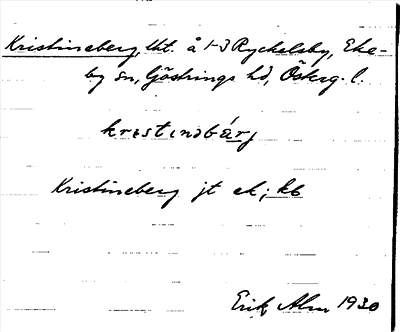 Kristineberg, lht. å 1-3 Ryckelsby, Eke-
by sn, Göstrings hd, Österg. l.
kristinəbárj
Kristineberg jt ek; kb
Erik Alm 1930